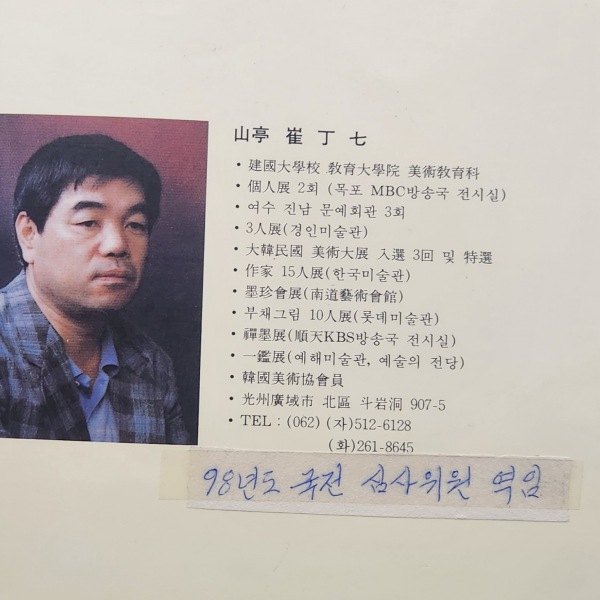 山亭 崔 丁 七
• 建國大學校 敎育大學院 美術敎育科
• 個人展 2회 (목포 MBC방송국 전시실)
• 여수 진남 문예회관 3회
• 3人展(경인미술관)
• 大韓民國 美術大展 入選 3回 및 特選
• 作家 15人展(한국미술관)
• 墨珍會展(南道藝術會館)
• 부채그림 10人展(롯데미술관)
• 禪墨展(順天KBS방송국 전시실)
• 一鑑展(예해미술관, 예술의 전당)
• 韓國美術協會員
• 光州廣域市 北區 斗岩洞 907-5
• TEL : (062) (자)512-6128
(화)261-8645
98년도 국전 심사위원 역임